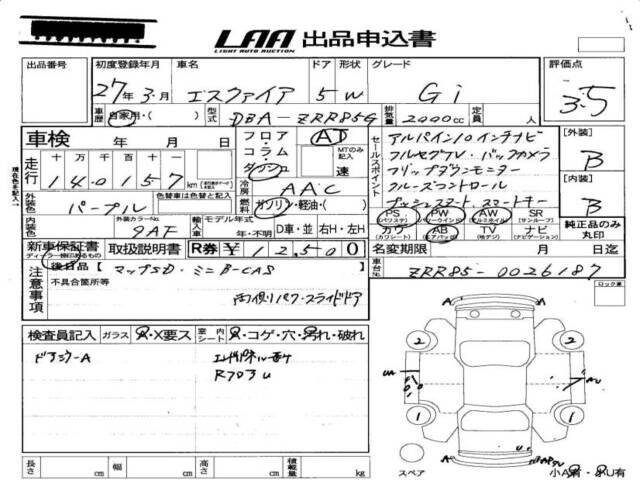 LAA 出品申込書
LIGHT AUTO AUCTION
出品番号 初度登録年月 車名 ドア 形状 グレード 評価点
27年3月 エスクァイア 5 W Gi 3.5
車歴 自家用・( ) 型式 DBA-ZRR85G 排気量 2000cc 定員 人
車検 年 月 日
フロア コラム ダッシュ AT MTのみ記入 速
セールスポイント
アルパイン10インチナビ
フルセグTV・バックカメラ
フリップダウンモニター
クルーズコントロール
プッシュスタート スマートキー
[外装] B
[内装] B
走行 十 万 千 百 十 一
140157 km
冷房 AAC
燃料 ガソリン・軽油・( )
外装色 パープル 色替車は色替と記入
内装色 外装カラーNo. 9AF
輸入車 モデル年式 年・不明 D車・並 右H・左H
PS (パワステ) PW (パワーウインドウ) AW (アルミホイル) SR (サンルーフ)
カワ (カワシート) AB (エアバッグ) TV (地デジ) ナビ (ナビゲーション)
純正品のみ丸印
新車保証書 取扱説明書 R券 ¥12,500
名変期限 月 日迄
車台No. ZRR85-0026187
注意事項
後日品【マップSD・ミニB-CAS
不具合箇所等
両側パワースライドドア
ロック車
検査員記入 ガラス A・X要ス 室内 シート A・コゲ・穴・汚れ・破れ
ドアミラーA
2 2
UA AU
1 1
U
スペア 小A有・小U有
長さ cm 幅 cm 高さ cm 積載量 kg